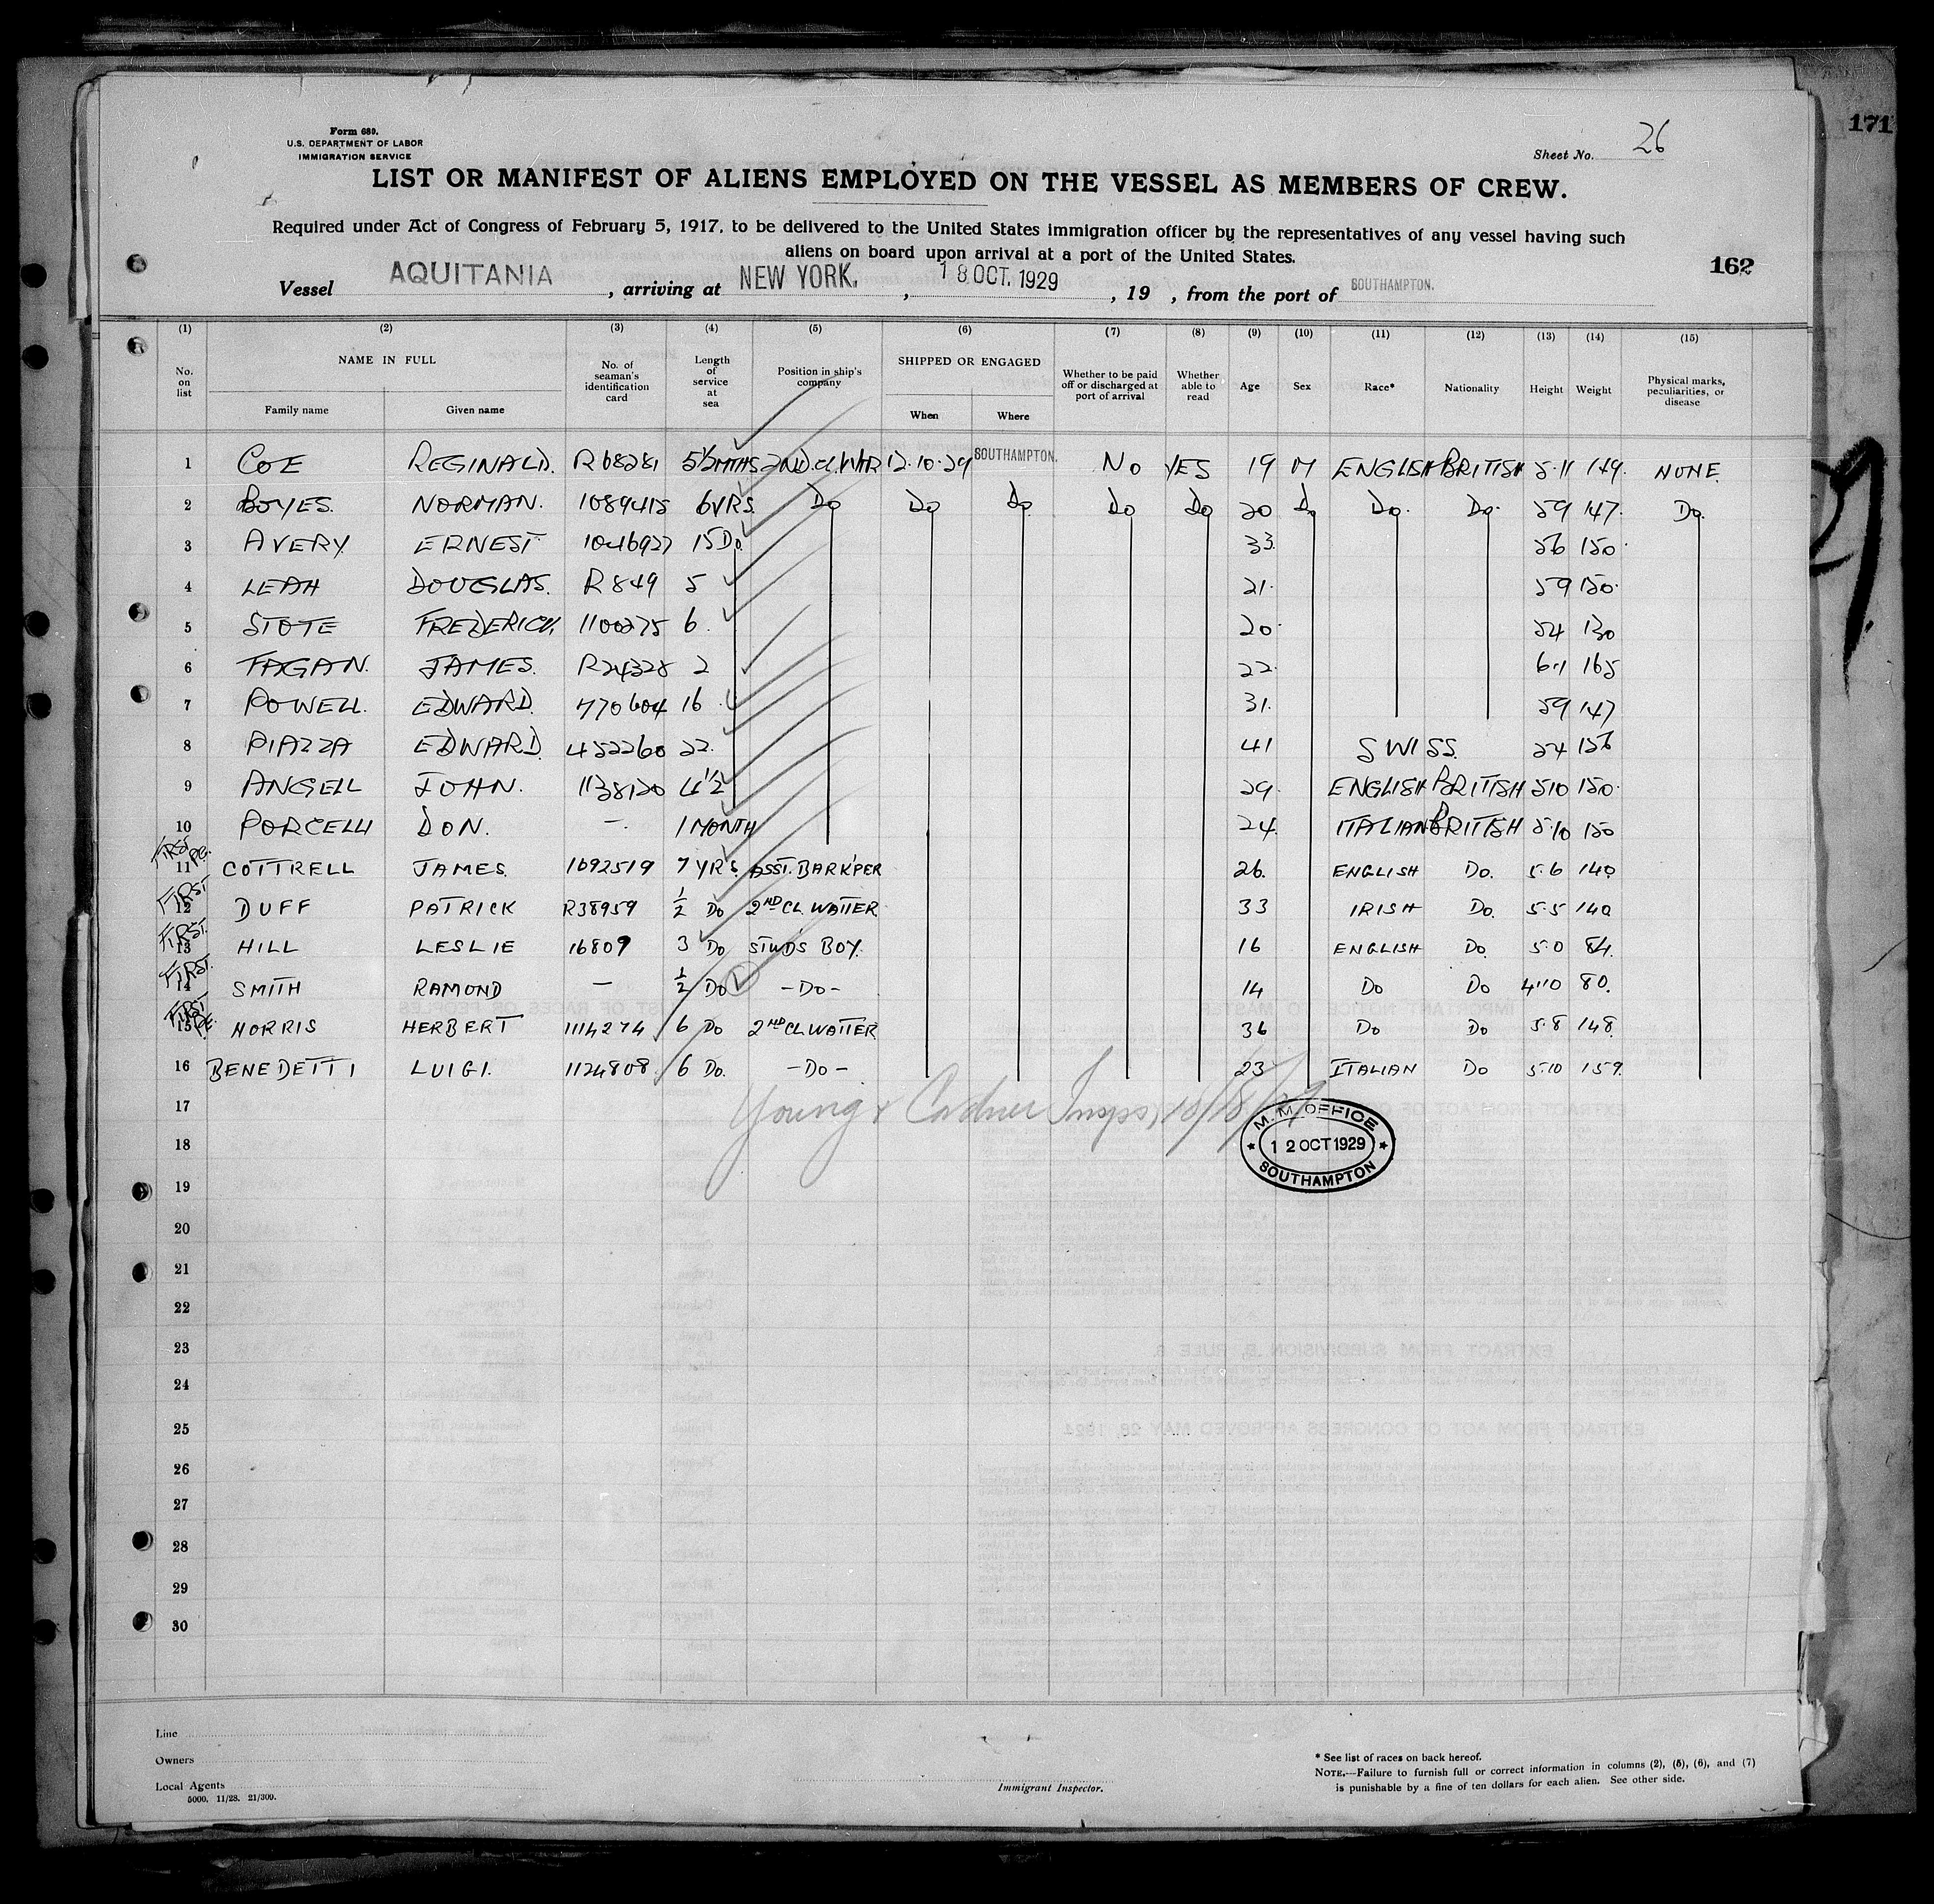 171
Form 689.
U.S. DEPARTMENT OF LABOR
IMMIGRATION SERVICE
Sheet No. 26
LIST OR MANIFEST OF ALIENS EMPLOYED ON THE VESSEL AS MEMBERS OF CREW.
Required under Act of Congress of February 5, 1917, to be delivered to the United States immigration officer by the representatives of any vessel having such
aliens on board upon arrival at a port of the United States.
162
Vessel AQUITANIA, arriving at NEW YORK., 18 OCT. 1929, 19 , from the port of SOUTHAMPTON.
(1) (2) (3) (4) (5) (6) (7) (8) (9) (10) (11) (12) (13) (14) (15)
No. on list NAME IN FULL Family name Given name No. of seaman's identification card Length of service at sea Position in ship's company SHIPPED OR ENGAGED When Where Whether to be paid off or discharged at port of arrival Whether able to read Age Sex Race* Nationality Height Weight Physical marks, peculiarities, or disease
1 COE REGINALD. R68281 5½MTHS 2ND.Cl.WTR 12.10.29 SOUTHAMPTON. NO YES 19 M ENGLISH BRITISH 5.11 149. NONE.
2 BOYES. NORMAN. 1089415 6YRS. Do Do Do Do Do 20 Do Do. Do. 59 147. Do.
3 AVERY ERNEST 1046927 15 Do. 33. 56 150.
4 LEAH DOUGLAS. R849 5 21. 59 150.
5 STOTE FREDERICK. 1100275 6. 20. 54 130
6 FAGAN. JAMES. R24328 2 22. 6.1 165
7 POWELL. EDWARD. 770604 16 31. 59 147
8 PIAZZA EDWARD. 452260 22. 41 SWISS. 54 156
9 ANGELL JOHN. 1138120 4½ 29. ENGLISH BRITISH 510 150.
10 PORCELLI DON. — 1 MONTH 24. ITALIAN BRITISH 5.10 150
FIRST. PE.
11 COTTRELL JAMES. 1092519 7 YRS. ASST. BARK'PER 26. ENGLISH Do. 5.6 140
FIRST
12 DUFF PATRICK R38959 ½ Do 2ND CL. WAITER 33 IRISH Do. 5.5 140
FIRST.
13 HILL LESLIE 16809 3 Do STWDS BOY. 16 ENGLISH Do 5.0 84.
FIRST.
14 SMITH RAMOND — ½ Do -Do- 14 Do Do 4'10 80.
FIRST PE.
15 NORRIS HERBERT 1114274 6 Do 2ND CL WAITER 36 Do Do 5.8 148.
16 BENEDETTI LUIGI. 1124808. 6 Do. -Do- 23 ITALIAN Do 5.10 159.
17 Young & Insps, 10/18/29
M. M. OFFICE
18 12 OCT 1929
SOUTHAMPTON
19
20
21
22
23
24
25
26
27
28
29
30
Line
Owners
Local Agents
5000. 11/28. 21/309.
Immigrant Inspector.
* See list of races on back hereof.
NOTE.—Failure to furnish full or correct information in columns (2), (5), (6), and (7)
is punishable by a fine of ten dollars for each alien. See other side.